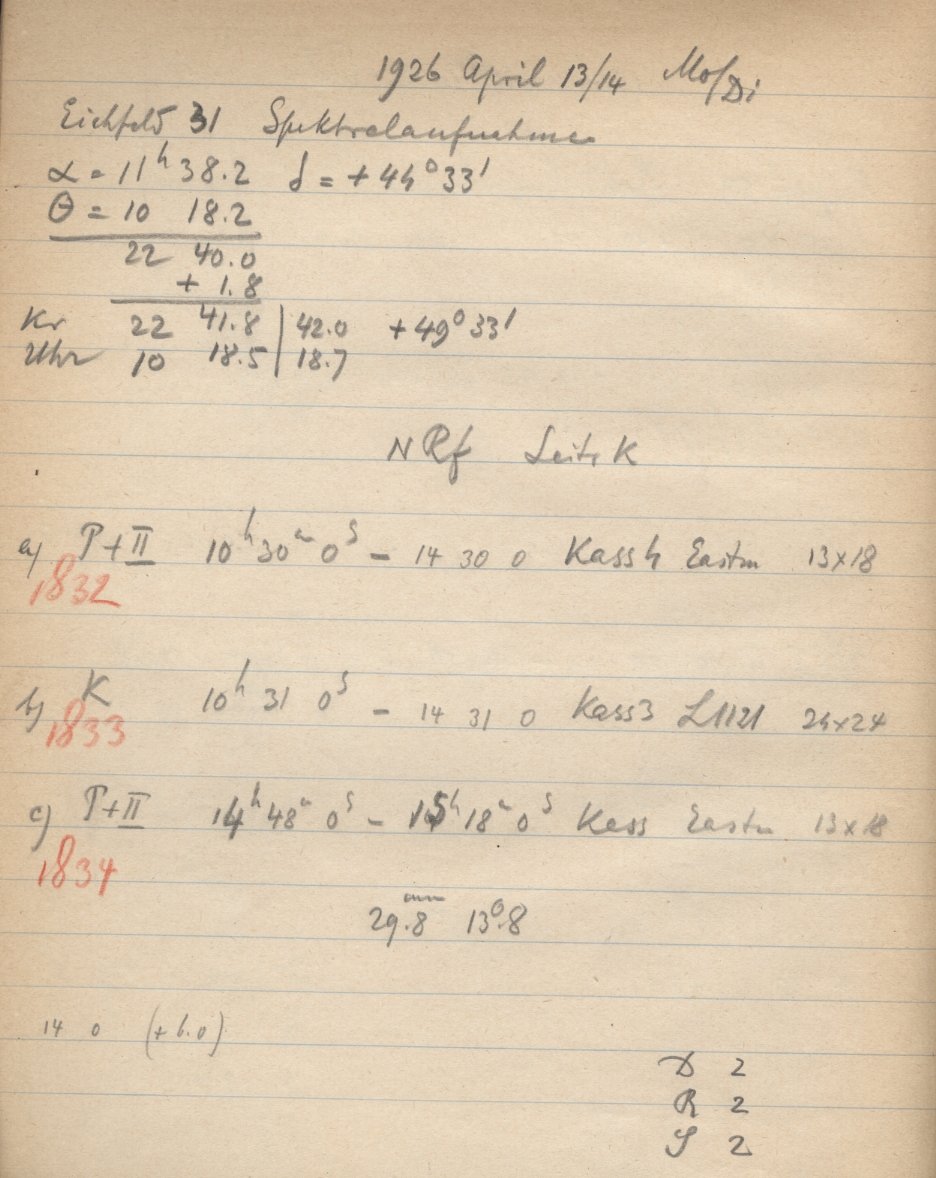 1926 April 13/14 Mo/Di
Eichfeld 31 Spektralaufnahme
α = 11ʰ 38.2 δ = +44° 33'
Θ = 10 18.2
22 40.0
+ 1.8
Kr 22 41.8 | 42.0 +49° 33'
Uhr 10 18.5 | 18.7
N Rf Leitr K
a) P+II 10ʰ 30ᵐ 0ˢ – 14 30 0 Kass 4 Eastm 13×18
1832
b) K 10ʰ 31 0ˢ – 14 31 0 Kass 3 L1121 24×24
1833
c) P+II 14ʰ 48ᵐ 0ˢ – 15ʰ 18ᵐ 0ˢ Kass Eastm 13×18
1834
29.8 mm 13°.8
14 0 (+6.0)
D 2
R 2
S 2